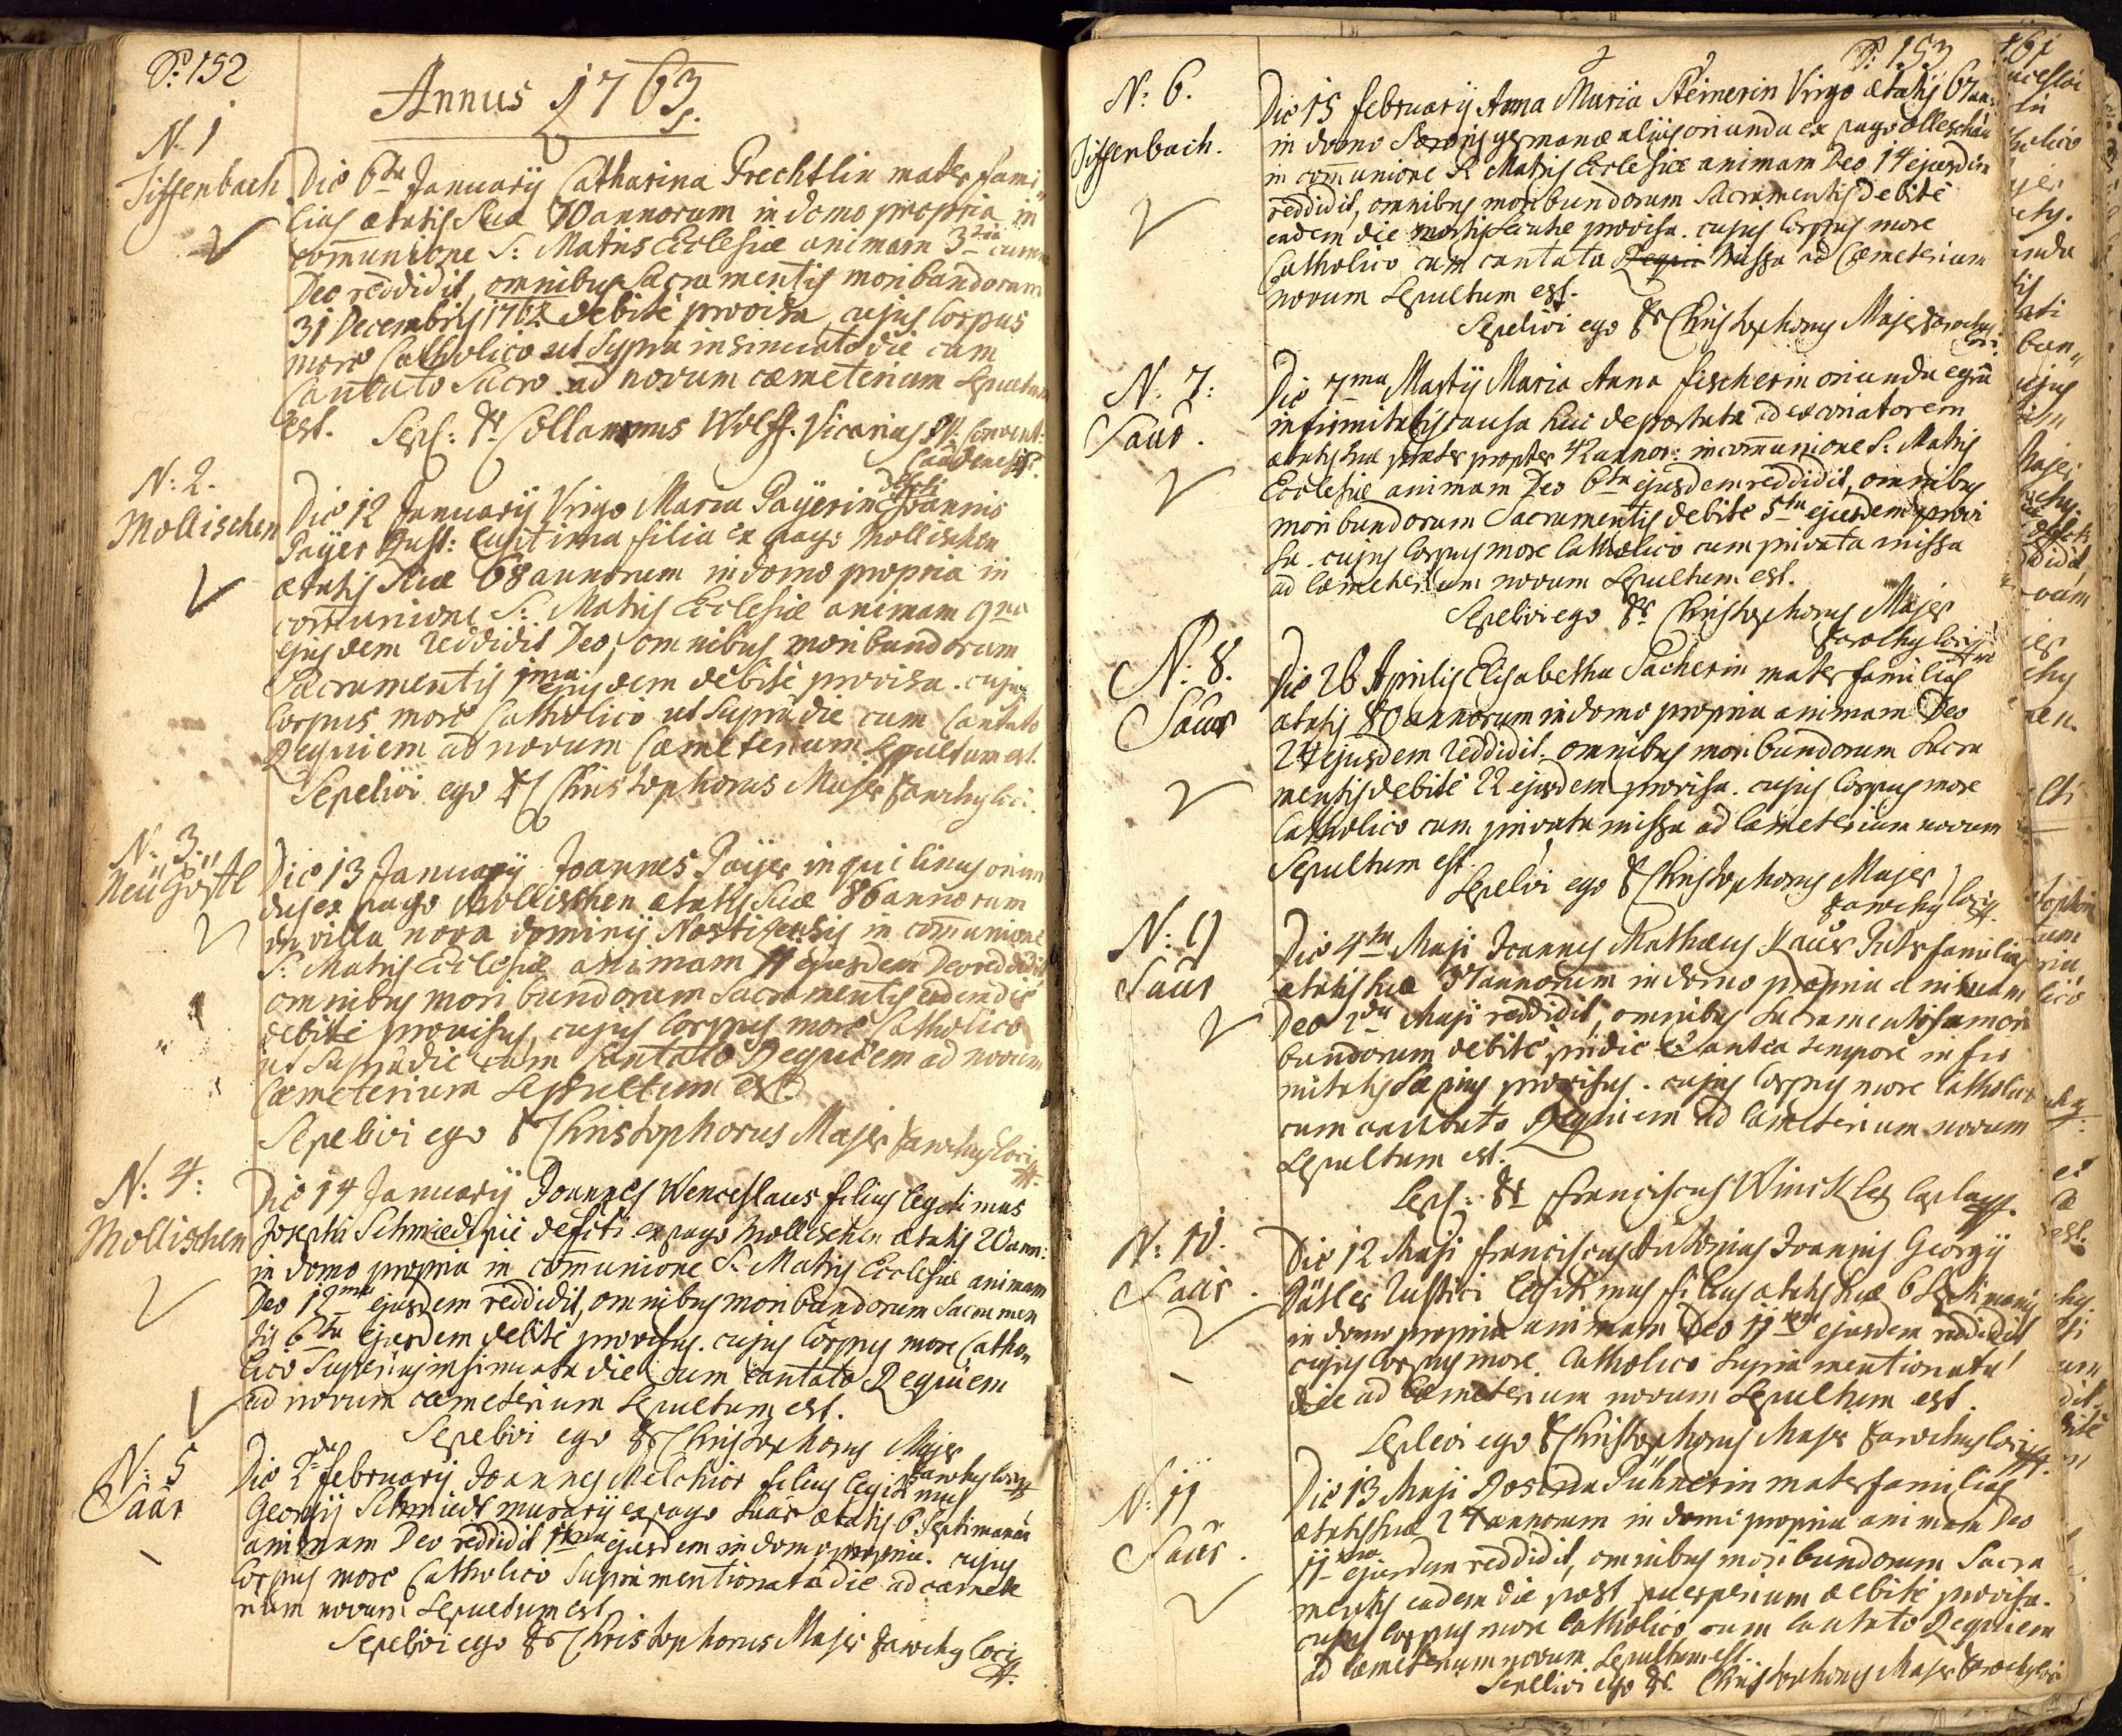 P: 152
Annus 1763
N. 1
Tiffenbach
Die 6ta Januarij Catharina Prechtlin mater fami„
lias ætatis suæ 70 annorum in domo propria in
com̄unione S: Matris Ecclesiæ animam 3tia
Deo reddidit, omnibus Sacramentis moribundorum
31 Decembris 1762 debite provisa, cujus Corpus
more Catholico ut supra insinuato die cum
Cantato Sacro ad novum cæmeterium Sepultum
est. Sepl: Fr Collamanus Wolff. Vicarius
N: 2.
Mollischen
Die 12 Januarij Virgo Maria Payerin defti Joannis
Payer Rust: legitima filia ex pago Mollischen
ætatis suæ 68 annorum in domo propria in
com̄unione S: Matris Ecclesiæ animam 9na
ejusdem reddidit Deo, omnibus moribundorum
Sacramentis 1ma ejusdem debite provisa. cujus
Corpus more Catholico ut supra die cum Cantato
Requiem ad novum Cæmeterium Sepultum est.
Sepelivi ego Fr Christophorus Majer Parochus loci.
N: 3.
Neü Göstl
Die 13 Januarij Joannes Payer inquilinus oriun
dus ex pago Mollischen ætatis suæ 86 annorum
in villa nova dominij Nostizensis in com̄unione
S: Matris Ecclesiæ animam 11 ejusdem Deo reddidit
omnibus moribundorum Sacramentis eadem die
debite provisus, cujus Corpus more Catholico
ut supra die cum Cantato Requiem ad novum
Cæmeterium Sepultum est.
Sepelivi ego Fr Christophorus Majer Parochus loci
N: 4:
Mollischen
Die 14 Januarij Joannes Wenceslaus filius legitimus
Josephi Schmiedt pie defcti ex pago Mollischen ætatis 20 ann:
in domo propria in com̄unione S: Matris Ecclesiæ animam
Deo 12ma ejusdem reddidit, omnibus moribundorum Sacramen
tis 6ta ejusdem debite provisus. cujus Corpus more Catho
lico superius insinuata die cum cantato Requiem
ad novum cæmeterium Sepultum est.
Sepelivi ego Fr Christophorus Majer
Parochus loci
N: 5
Saar
Die 2da februarij Joannes Melchior filius legitimus
Georgij Schmiedt murarij ex pago Saar ætatis 6 Septimanar
animam Deo reddidit 1ma ejusdem in domo propria. cujus
Corpus more Catholico supra mentionata die ad cæmete
rium novum Sepultum est
Sepelivi ego Fr Christophorus Majer Parochus loci
P: 153
N: 6.
Tiffenbach.
Die 15 februarij Anna Maria Steinerin Virgo ætatis 67 an:
in domo Sororis germanæ alias oriunda ex pago Olleschau
in com̄unione S: Matris Ecclesiæ animam Deo 14 ejusdem
reddidit, omnibus moribundorum Sacramentis debite
eadem die provisa. cujus Corpus more
Catholico cum cantata Missa ad Cæmeterium
novum Sepultum est.
Sepelivi ego Fr Christophorus Majer Parochus
loci.
N: 7:
Saar.
Die 7ma Martij Maria Anna Fischerin oriunda
infirmitatis causa huc deportata ad excoriatorem
ætatis suæ præter propter 42 annor: in com̄unione S: Matris
Ecclesiæ animam Deo 6ta ejusdem reddidit, omnibus
moribundorum Sacramentis debite 5ta ejusdem provi
sa. cujus Corpus more Catholico cum privata missa
ad Cæmeterium novum Sepultum est.
Sepelivi ego Fr Christophorus Majer
Parochus loci
N: 8.
Saar
Die 26 Aprilis Elisabetha Pacherin mater familias
ætatis 80 annorum in domo propria animam Deo
24 ejusdem reddidit. omnibus moribundorum Sacra
mentis debite 22 ejusdem provisa. cujus Corpus more
Catholico cum privata missa ad Cæmeterium novum
Sepultum est.
Sepelivi ego Fr Christophorus Majer
Parochus loci
N: 9
Saar
Die 4ta Maji Joannes Mathæus Paterfamilias
ætatis suæ 37 annorum in domo propria animam
Deo 2da Maji reddidit, omnibus Sacramentis mori
bundorum debite pridie & antea tempore infir
mitatis sæpius provisus. cujus Corpus more Catholico
cum cantato Requiem ad Cæmeterium novum
Sepultum est.
Sepl: Fr Franciscus Winckler Caplan.
N: 10.
Saar.
Die 12 Maji Franciscus Antonius Joannis Georgij
Rustici legitimus filius ætatis suæ 6 Septimanis
in domo propria animam Deo 11ma ejusdem reddidit
cujus Corpus more Catholico supra mentionata
die ad Cæmeterium novum Sepultum est.
Sepelivi ego Fr Christophorus Majer Parochus loci
N: 11
Saar.
Die 13 Maji Rosina Pühnerin materfamilias
ætatis suæ 24 annorum in domo propria animam Deo
11ma ejusdem reddidit, omnibus moribundorum Sacra
mentis eadem die post puerperium debite provisa.
cujus Corpus more Catholico cum Cantato Requiem
ad Cæmeterium novum Sepultum est.
Sepelivi ego Fr. Christophorus Majer Parochus loci